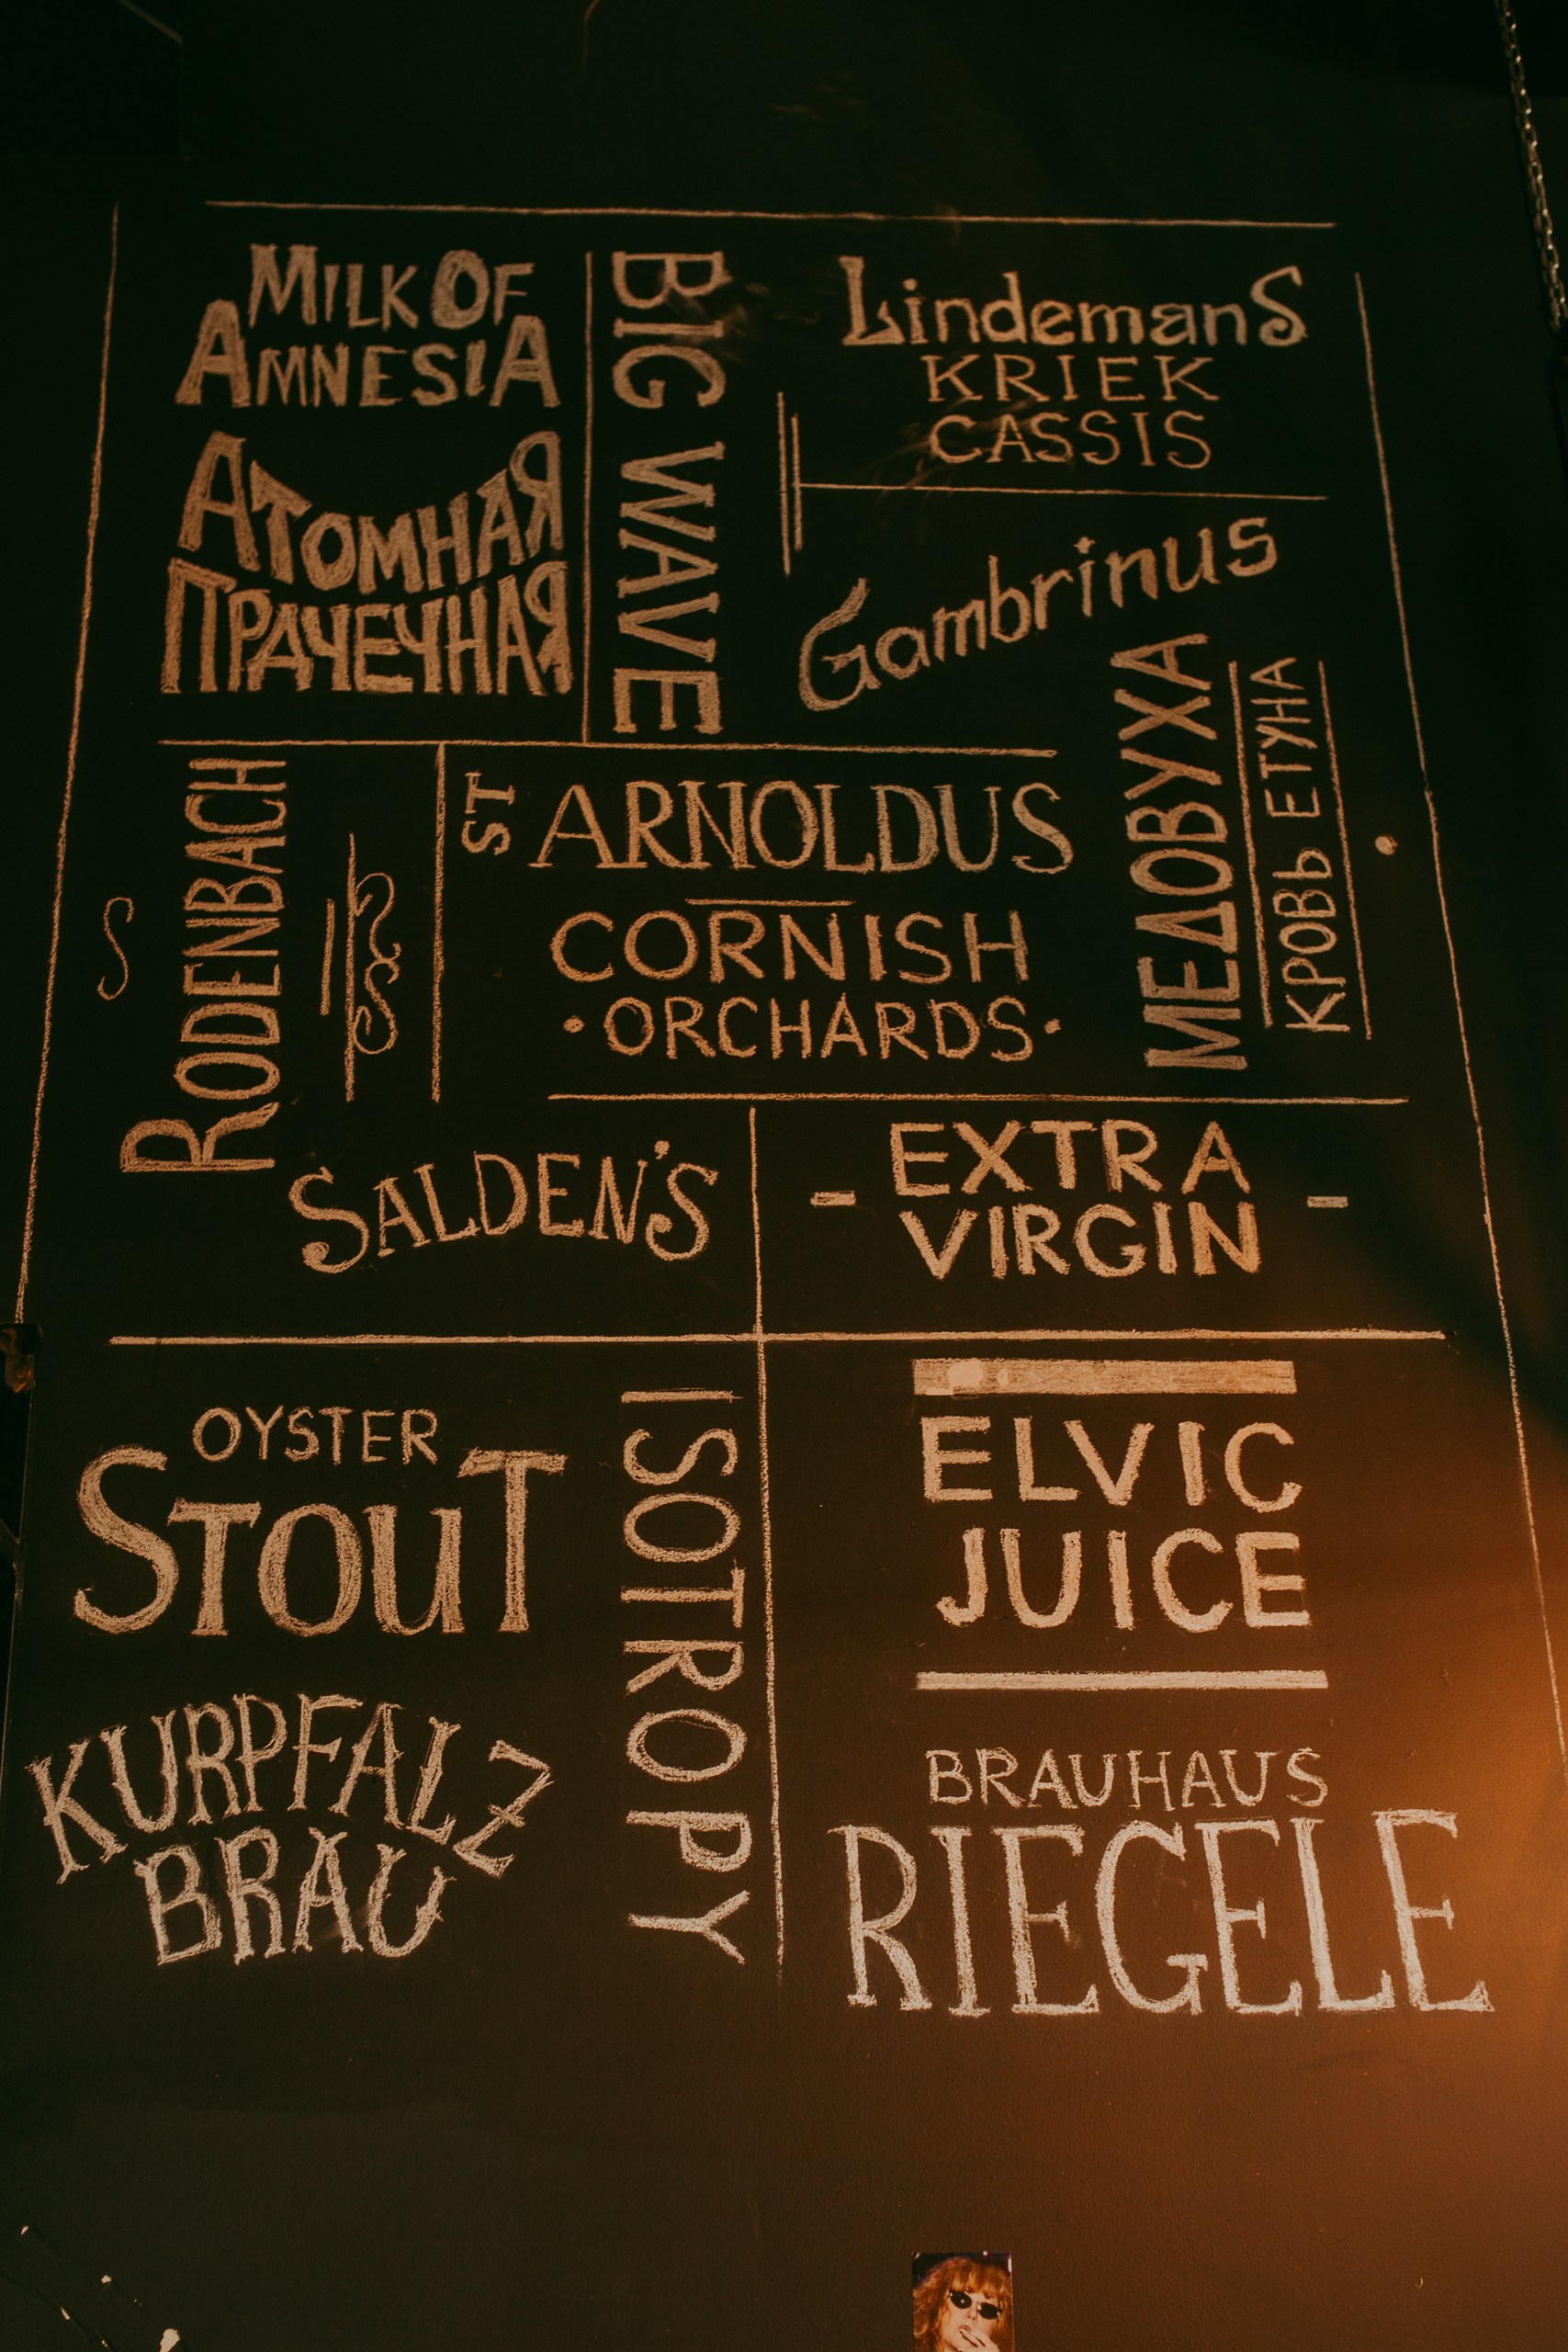 MILK OF
AMNESIA
АТОМНАЯ
ПРАЧЕЧНАЯ
BIG WAVE
Lindemans
KRIEK
CASSIS
Gambrinus
МЕДОВУХА
КРОВЬ ЕТУНА
RODENBACH
ST ARNOLDUS
CORNISH
·ORCHARDS·
SALDEN'S
- EXTRA
VIRGIN -
OYSTER
STOUT
KURPFALZ
BRAU
ISOTROPY
ELVIC
JUICE
BRAUHAUS
RIEGELE